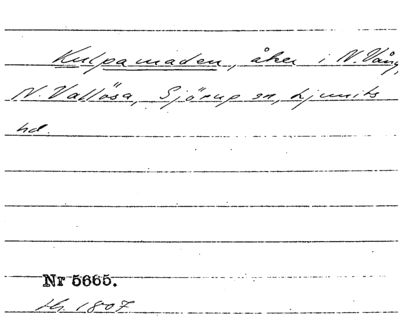 Kulpamaden, åker i N. Vång,
N. Vallösa, Sjörup sn, Ljunits
hd.
Nr 5665.
1807